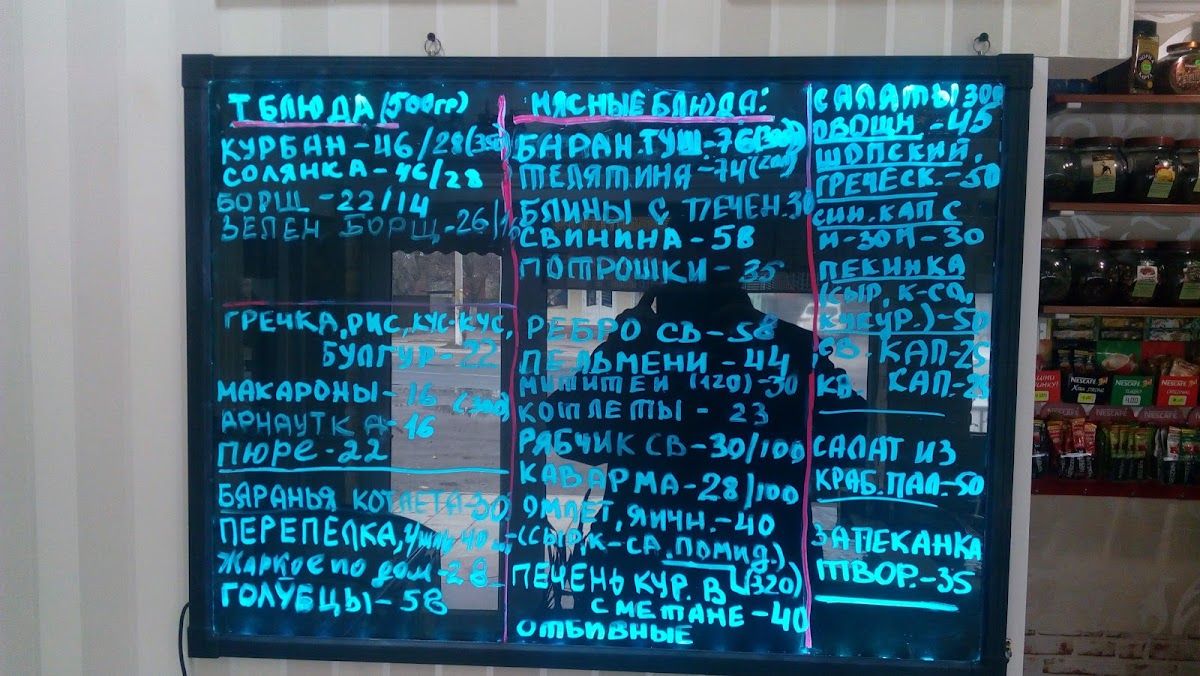 Т БЛЮДА (500гр)
КУРБАН-46/28(350
СОЛЯНКА-46/28
БОРЩ-22/14
ЗЕЛЕН БОРЩ-26/
ГРЕЧКА, РИС, КУС-КУС,
БУЛГУР-22
МАКАРОНЫ-16 (300)
АРНАУТКА-16
ПЮРЕ-22
БАРАНЬЯ КОТЛЕТА-30
ПЕРЕПЁЛКА,
Жаркое по дом-28
ГОЛУБЦЫ-58
МЯСНЫЕ БЛЮДА:
БАРАН.ТУШ-76(300)
ТЕЛЯТИНА-74(200)
БЛИНЫ С ПЕЧЕН.30
СВИНИНА-58
ПОТРОШКИ-35
РЕБРО СВ-58
ПЕЛЬМЕНИ-44
МИТИТЕИ (120)-30
КОТЛЕТЫ-23
РЯБЧИК СВ-30/100
КАВАРМА-28/100
ОМЛЕТ, ЯИЧН.-40
(СЫР, К-СА, ПОМИД.)
ПЕЧЕНЬ КУР. В (320)
СМЕТАНЕ-40
ОТБИВНЫЕ
САЛАТЫ 300
ОВОЩН-45
ШОПСКИЙ,
ГРЕЧЕСК.-50
СИН.КАП С
М-ЗОЙ-30
ПЕКИНКА
(СЫР, К-СА,
КУКУР.)-50
СВ. КАП-25
КВ. КАП-25
САЛАТ ИЗ
КРАБ.ПАЛ-50
ЗАПЕКАНКА
ТВОР.-35
NESCAFÉ
NESCAFÉ
NESCAFÉ